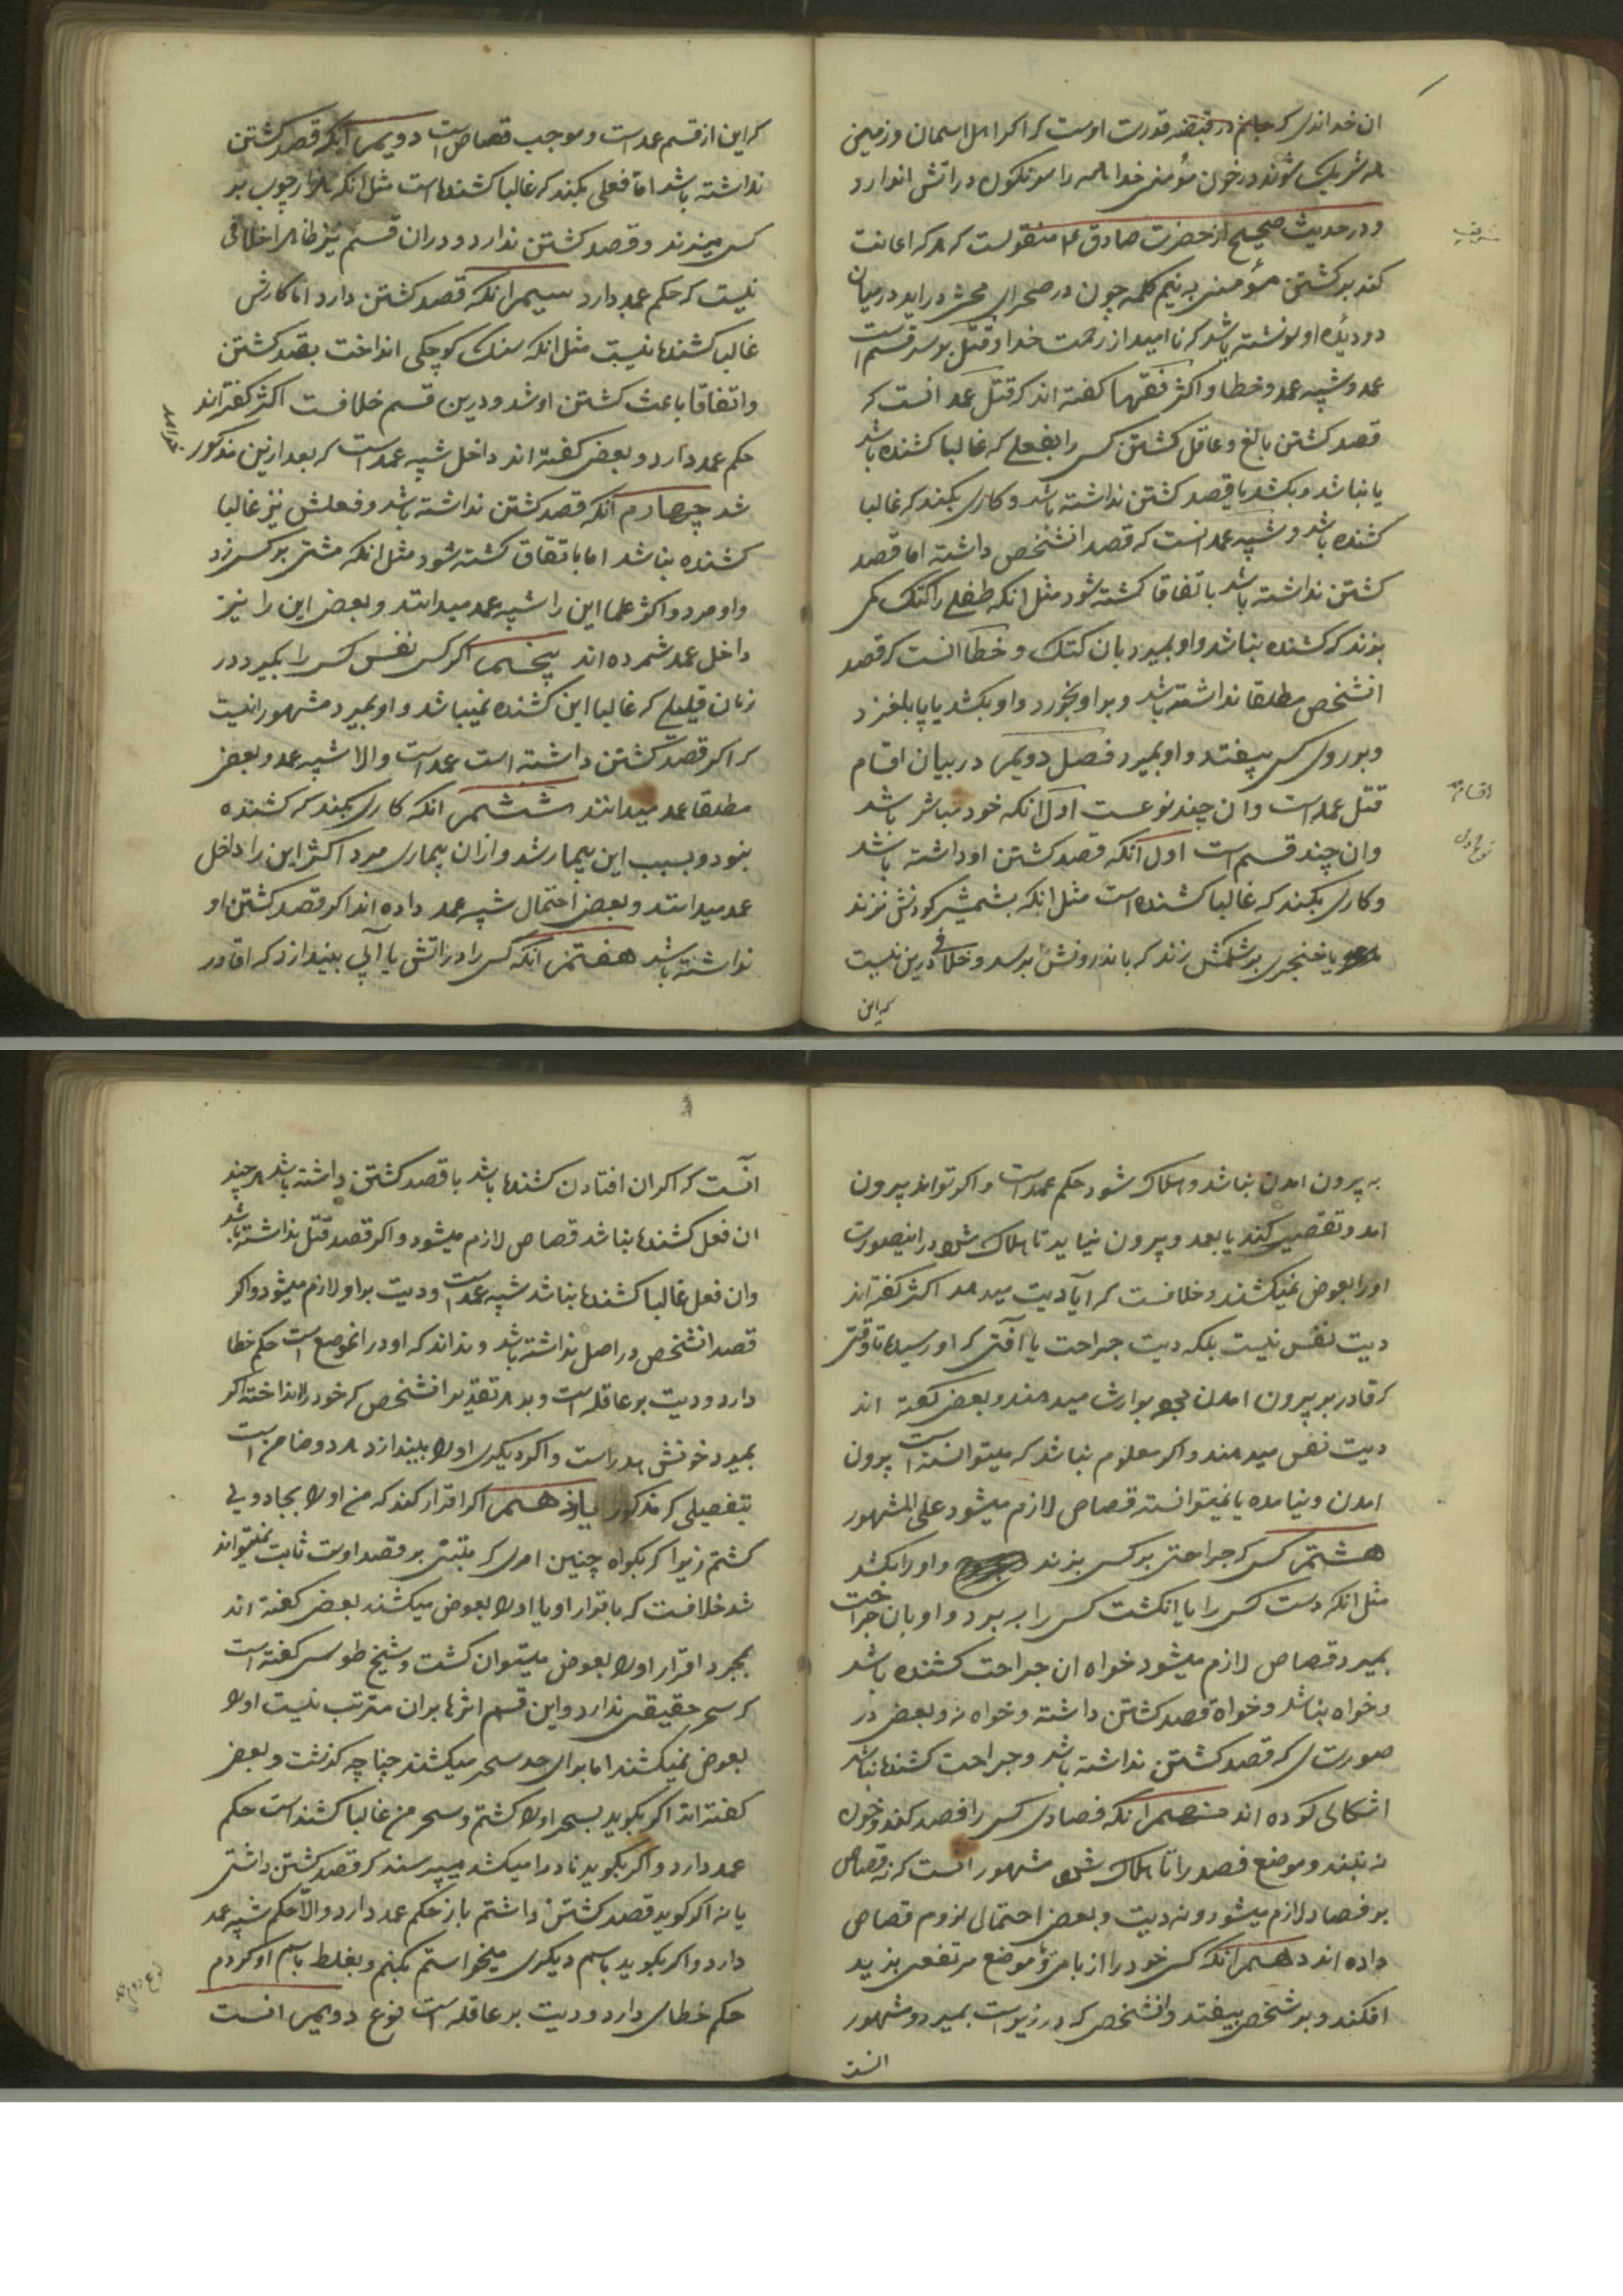 ان خداندی که جانم در قبضه قدرت اوست که اکر اهل اسمان و زمین
همه شریک شوند در خون مؤمنی خدا همه را سرنکون در اتش اندازد
و در حدیث صحیح از حضرت صادق ع منقولست که هر که اعانت
کند بر کشتن مؤمنی به نیم کلمه چون در صحرای محشر دراید در میان
دو دیده او نوشته باشد که ناامید از رحمت خدا و قتل بر سه قسم است
عمد و شبه عمد و خطا و اکثر فقها کفته اند که قتل عمد انست که
قصد کشتن بالغ و عاقل کشتن کسی را بفعلی که غالبا کشنده باشد
یا نباشد و بکشد یا قصد کشتن نداشته باشد و کاری بکند که غالبا
کشنده باشد و شبه عمد انست که قصد انشخص داشته اما قصد
کشتن نداشته باشد باتفاقا کشته شود مثل انکه طفلی را کتک کمی
بزند که کشنده نباشد و او بمیرد بان کتک و خطا انست که قصد
انشخص مطلقا نداشته باشد و بر او بخورد و او بکشد یا پا بلغزد
و بر روی کسی بیفتد و او بمیرد فصل دویم در بیان اقسام
اقسام
قتل عمد است و ان چند نوعست اول انکه خود مباشر باشد
نوع اول
و ان چند قسم است اول انکه قصد کشتن او داشته باشد
و کاری بکند که غالبا کشنده است مثل انکه بشمشیر کردنش بزند
یا خنجری بر شکمش زند که باندرونش برسد و خلافی درین نیست
که این
که این از قسم عمد است و موجب قصاص است دویم انکه قصد کشتن
نداشته باشد اما فعلی بکند که غالبا کشنده است مثل انکه هزار چوب بر
کسی میزند و قصد کشتن ندارد و در ان قسم نیز ظاهرا خلافی
نیست که حکم عمد دارد سیم انکه قصد کشتن دارد اما کارش
غالبا کشنده نیست مثل انکه سنک کوچکی انداخت بقصد کشتن
و اتفاقا باعث کشتن او شد و درین قسم خلافست اکثر کفته اند
حکم عمد دارد و بعضی کفته اند داخل شبه عمد است که بعد ازین مذکور خواهد
شد چهارم انکه قصد کشتن نداشته باشد و فعلش نیز غالبا
کشنده نباشد اما باتفاق کشته شود مثل انکه مشتی بر کسی زد
و او مرد و اکثر علما این را شبه عمد میدانند و بعضی این را نیز
داخل عمد شمرده اند پنجم اکر کسی نفس کسی را بکیرد در
زمان قلیلی که غالبا این کشنده نمیباشد و او بمیرد مشهور انست
که اکر قصد کشتن داشته است عمد است و الا شبه عمد و بعضی
مطلقا عمد میدانند ششم انکه کاری بکند که کشنده
نبود و بسبب این بیمار شد و ازان بیماری مرد اکثر این را داخل
عمد میدانند و بعضی احتمال شبه عمد داده اند اکر قصد کشتن او
نداشته باشد هفتم انکه کسی را در اتش یا آبی بیندازد که اقادر
به بیرون امدن نباشد و هلاک شود حکم عمد است و اکر تواند بیرون
امد و تقصیر کند یا بعد و بیرون نیاید تا هلاک شود در اینصورت
او را بعوض نمیکشند و خلافست که آیا دیت میدهد اکثر کفته اند
دیت نفس نیست بلکه دیت جراحت یا آفتی که او رسیده تا وقتی
که قادر بر بیرون امدن بوارث میدهند و بعضی کفته اند
دیت نفس میدهند و اکر معلوم نباشد که میتوانسته است بیرون
امدن و نیامده یا نمیتوانسته قصاص لازم میشود علی المشهور
هشتم کسی که جراحتی بر کسی بزند و او را بکشد
مثل انکه دست کسی را یا انکشت کسی را به برد و او بان جراحت
بمیرد قصاص لازم میشود خواه ان جراحت کشنده باشد
و خواه نباشد و خواه قصد کشتن داشته و خواه نه و بعضی در
صورتی که قصد کشتن نداشته باشد و جراحت کشنده نباشد
اشکالی کرده اند نهم انکه فصادی کسی را فصد کند و خون
نه بندد و موضع فصد را تا هلاک شود مشهور انست که نه قصاص
بر فصاد لازم میشود و نه دیت و بعضی احتمالی لزوم قصاص
داده اند دهم انکه کسی خود را از بامی و یا موضع مرتفعی بزیر
افکند و بر شخصی بیفتد و انشخص که در زیر است بمیرد و مشهور
انست
انست که اکر ان افتادن کشنده باشد با قصد کشتن داشته باشد هر چند
ان فعل کشنده نباشد قصاص لازم میشود و اکر قصد قتل نداشته باشد
و ان فعل غالبا کشنده نباشد شبه عمد است و دیت بر او لازم میشود و اکر
قصد انشخص در اصل نداشته باشد و نداند که او در انموضع است حکم خطا
دارد و دیت بر عاقله است و بهر تقدیر انشخص که خود را انداخته اکر
بمیرد خونش هدر است و اکر دیکری او را بیندازد هر دو ضامن است
بتفصیلی که مذکور یازدهم اکر اقرار کند که من او را بجادویی
کشتم زیرا که بکواه چنین امری که مبتنی بر قصد اوست ثابت نمیتواند
شد خلافست که باقرار او یا او را بعوض میکشند بعضی کفته اند
بمجرد اقرار او را بعوض میتوان کشت و شیخ طوسی کفته است
که سحر حقیقتی ندارد و این قسم اثرها بران مترتب نیست او را
بعوض نمیکشند اما برای حد سحر میکشند چنانچه کذشت و بعضی
کفته اند اکر بکوید بسحر او را کشتم و سحر من غالبا کشنده است حکم
عمد دارد و اکر بکوید نادرا میکشد میپرسند که قصد کشتن داشتی
یا نه اکر کوید قصد کشتن داشتم باز حکم عمد دارد و الا حکم شبه عمد
دارد و اکر بکوید باسم دیکری میخواستم بکنم و بغلط باسم او کردم
حکم خطای دارد و دیت بر عاقله است نوع دویم انست
نوع دویم